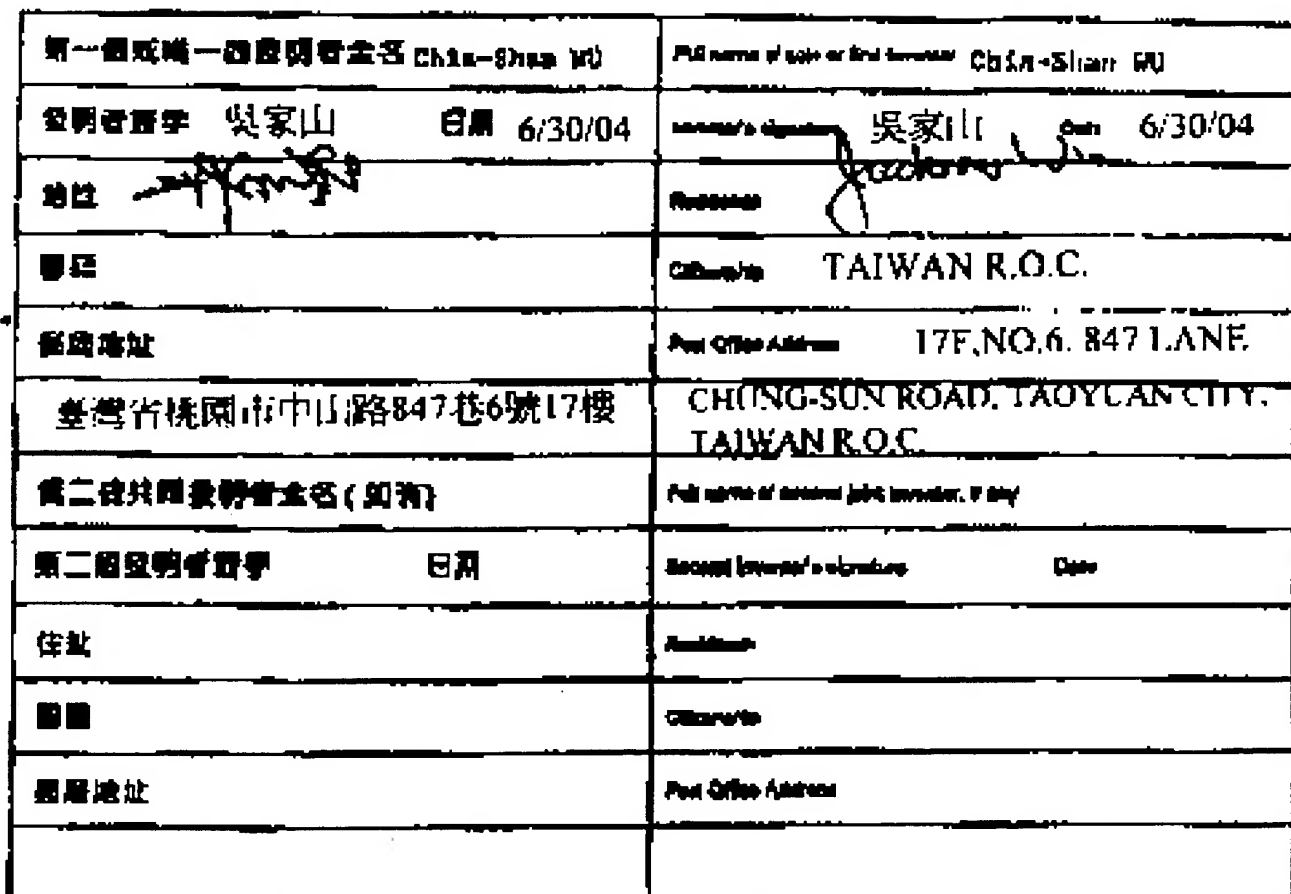 第一個或唯一個發明者全名 Chia-Shan WU
Full name of sole or first inventor Chia-Shan WU
發明者簽字 吳家山 日期 6/30/04
Inventor's signature 吳家山 Date 6/30/04
地址
Residence
國籍
Citizenship TAIWAN R.O.C.
郵政地址
Post Office Address 17F,NO.6. 847 LANE
臺灣省桃園市中山路847巷6號17樓
CHUNG-SUN ROAD. TAOYUAN CITY.
TAIWAN R.O.C.
第二位共同發明者全名(如有)
Full name of second joint inventor, if any
第二個發明者簽字 日期
Second inventor's signature Date
住址
Residence
國籍
Citizenship
郵政地址
Post Office Address